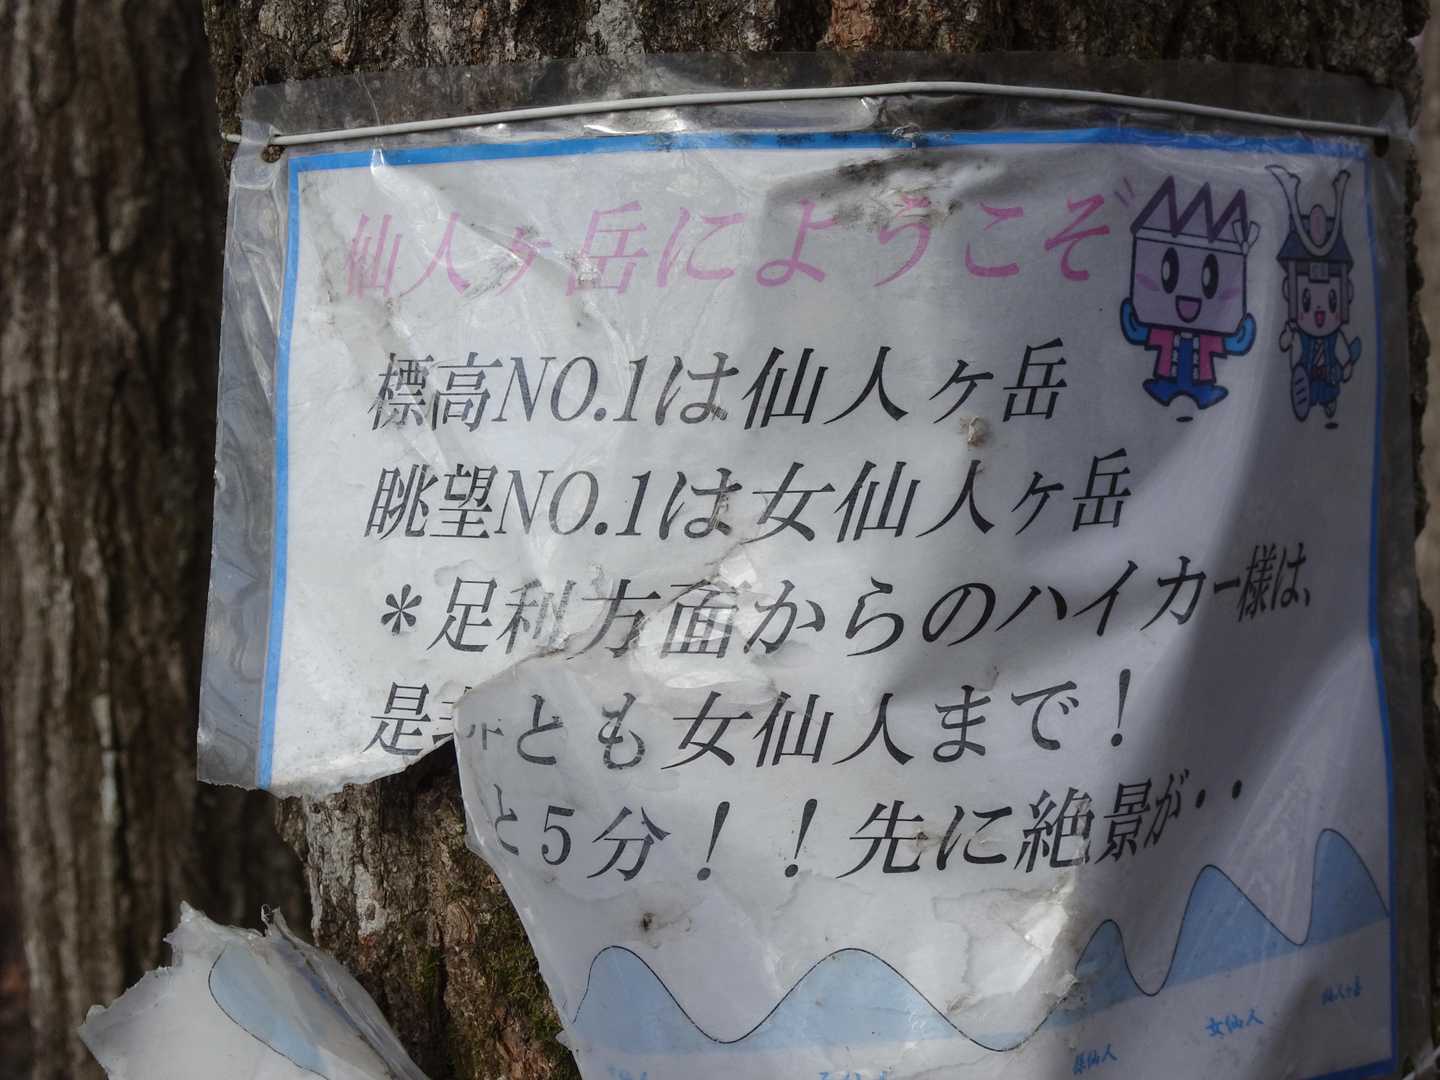 仙人ヶ岳にようこそ
標高NO.1は仙人ヶ岳
眺望NO.1は女仙人ヶ岳
*足利方面からのハイカー様は、
是非とも女仙人まで！
と5分！！先に絶景が・・
仙人ヶ岳
女仙人
孫仙人